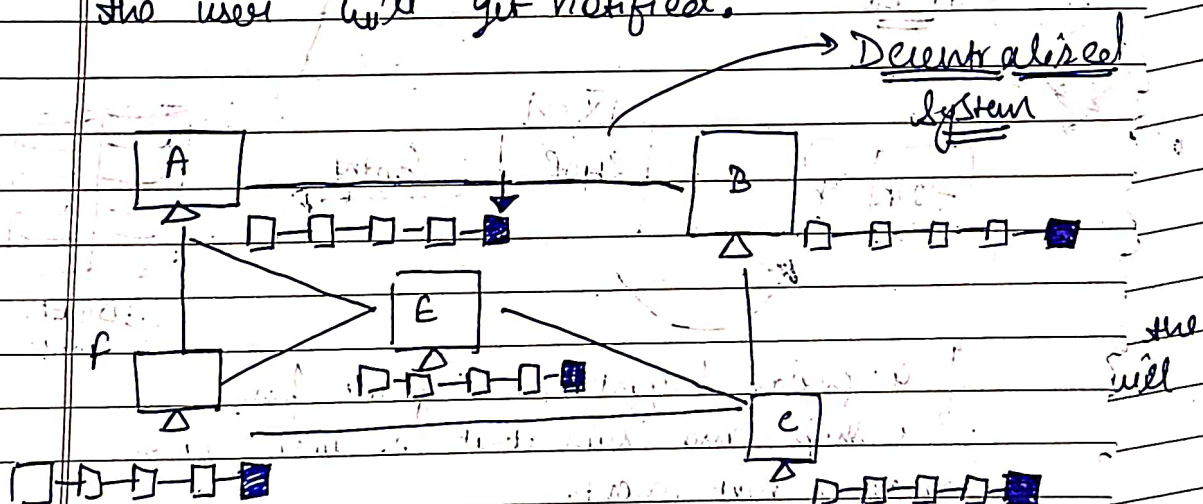 the user will get notified.
Decentralized
System
A
B
E
F
the
will
C